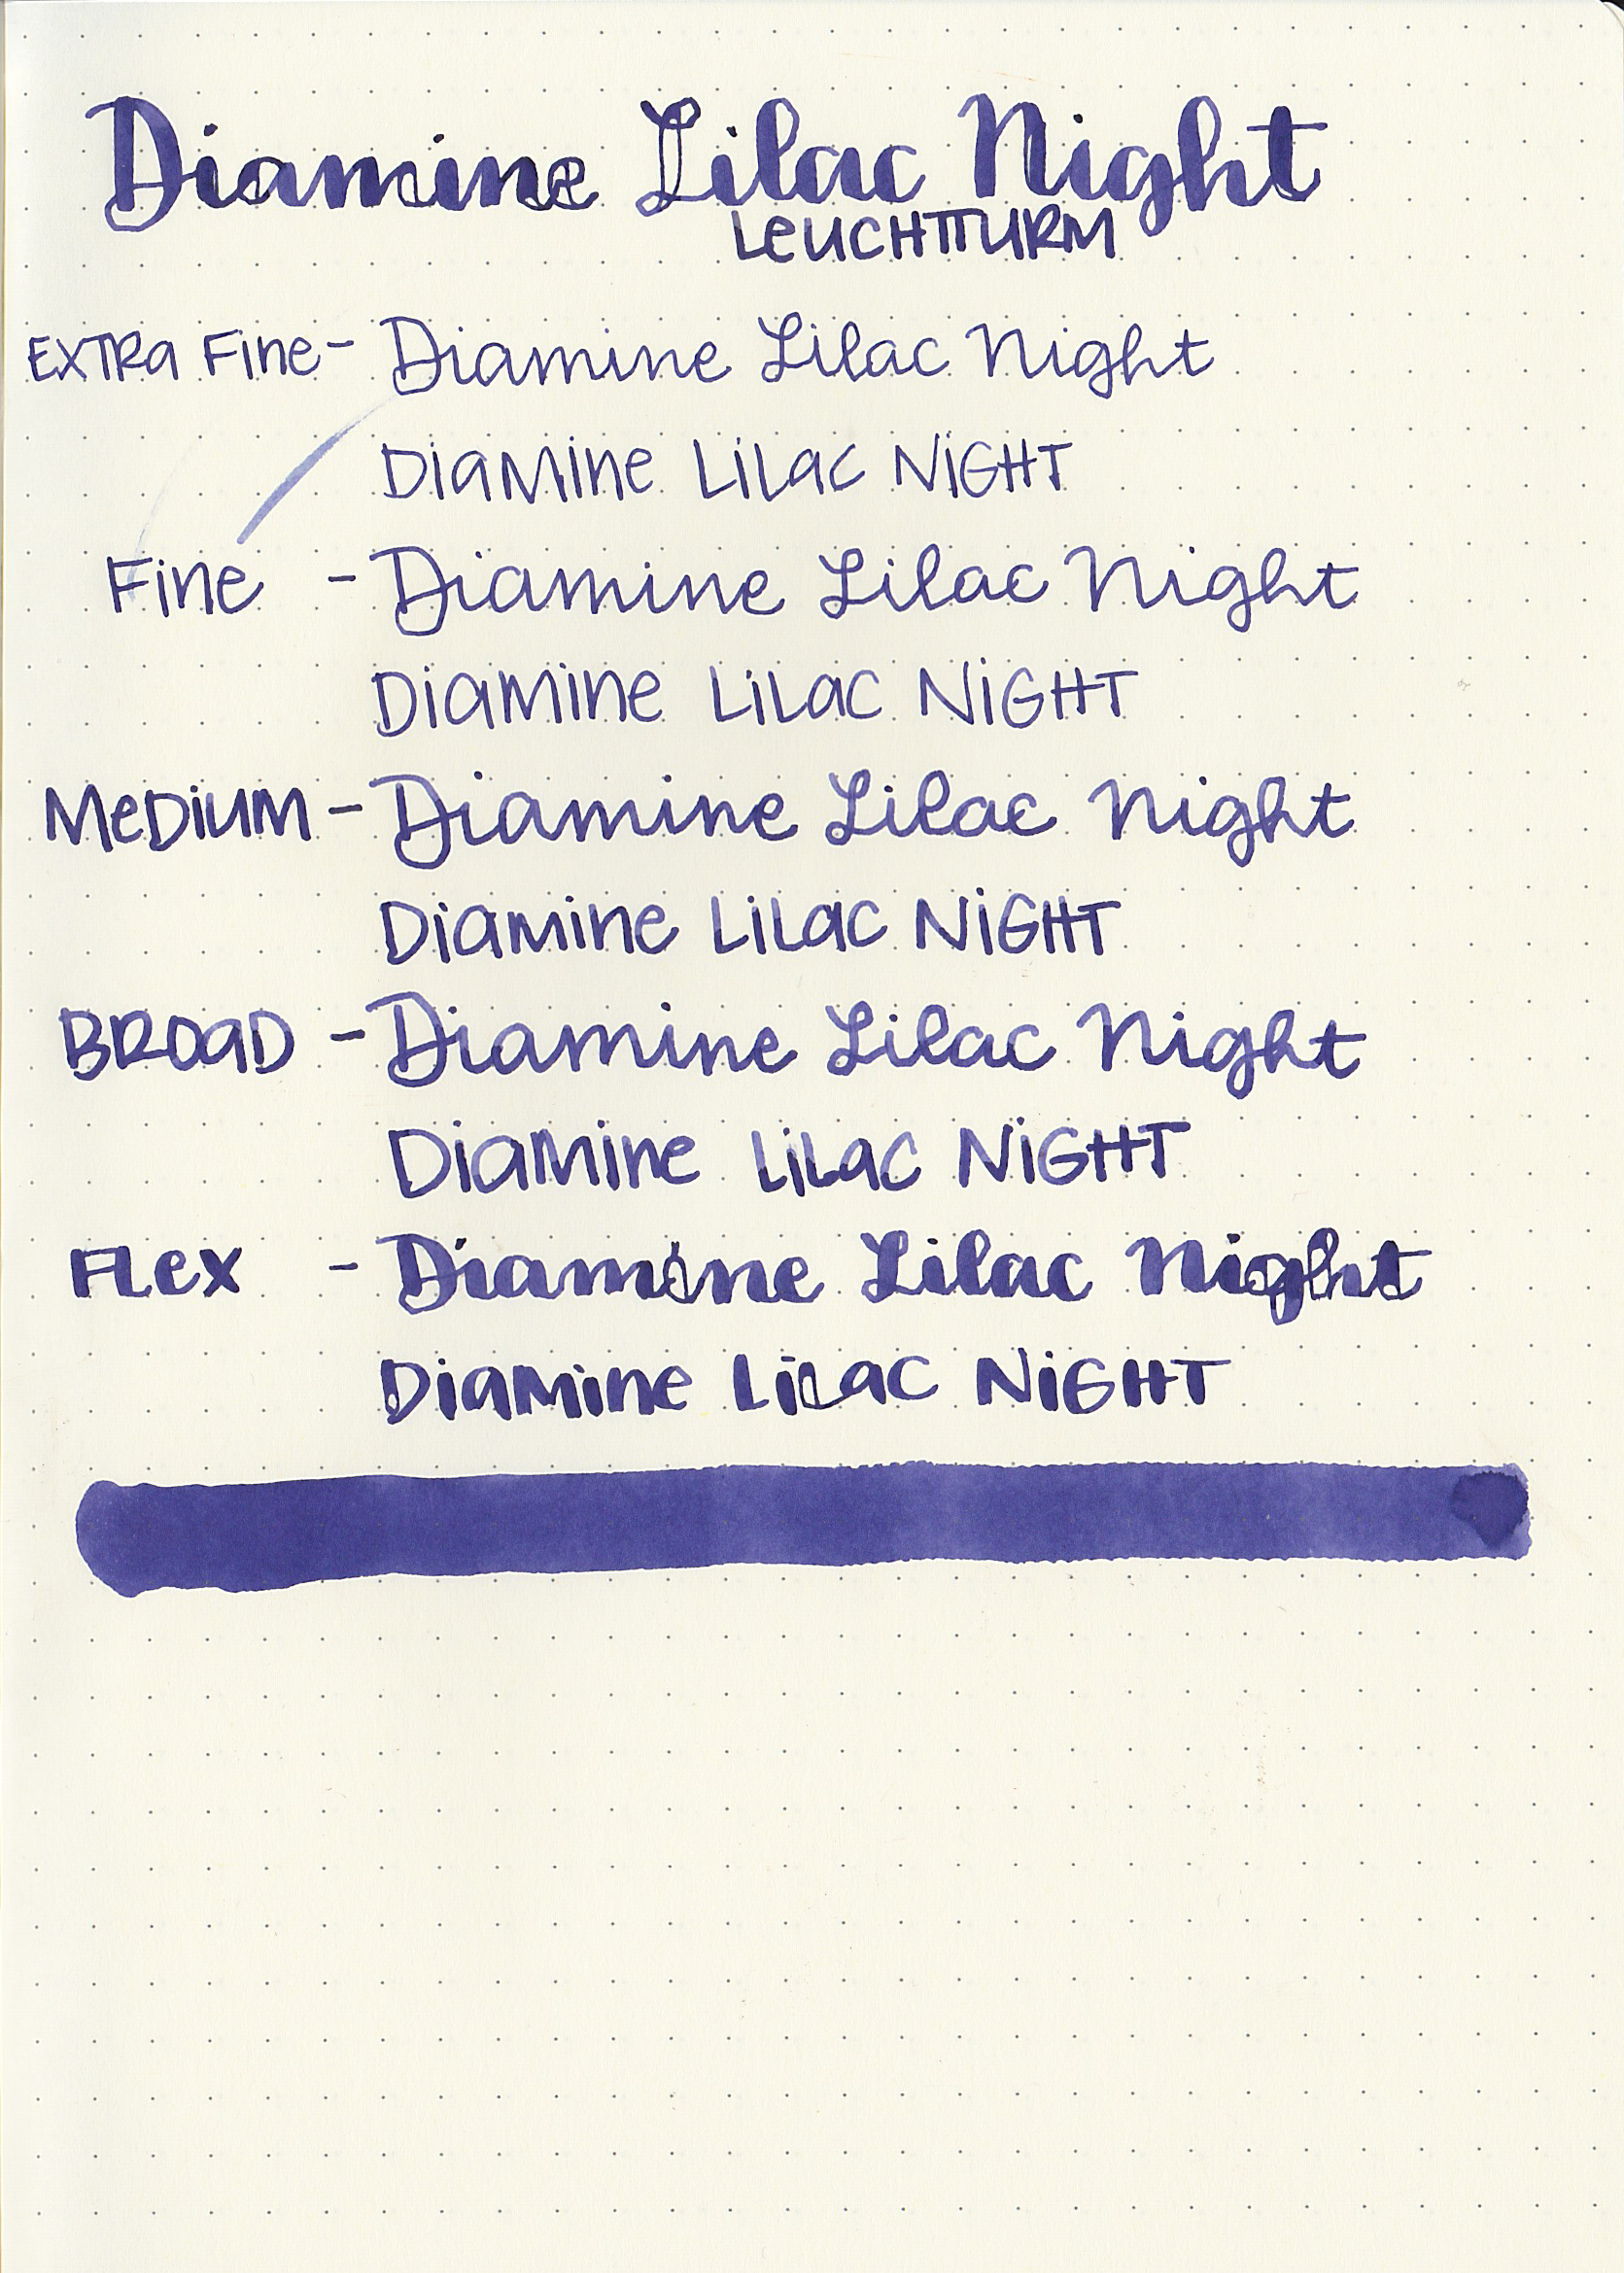 Diamine Lilac Night
LEUCHTTURM
EXTRA FINE - Diamine Lilac Night
DIAMINE LILAC NIGHT
FINE - Diamine Lilac Night
DIAMINE LILAC NIGHT
MEDIUM - Diamine Lilac Night
DIAMINE LILAC NIGHT
BROAD - Diamine Lilac Night
DIAMINE LILAC NIGHT
FLEX - Diamine Lilac Night
DIAMINE LILAC NIGHT